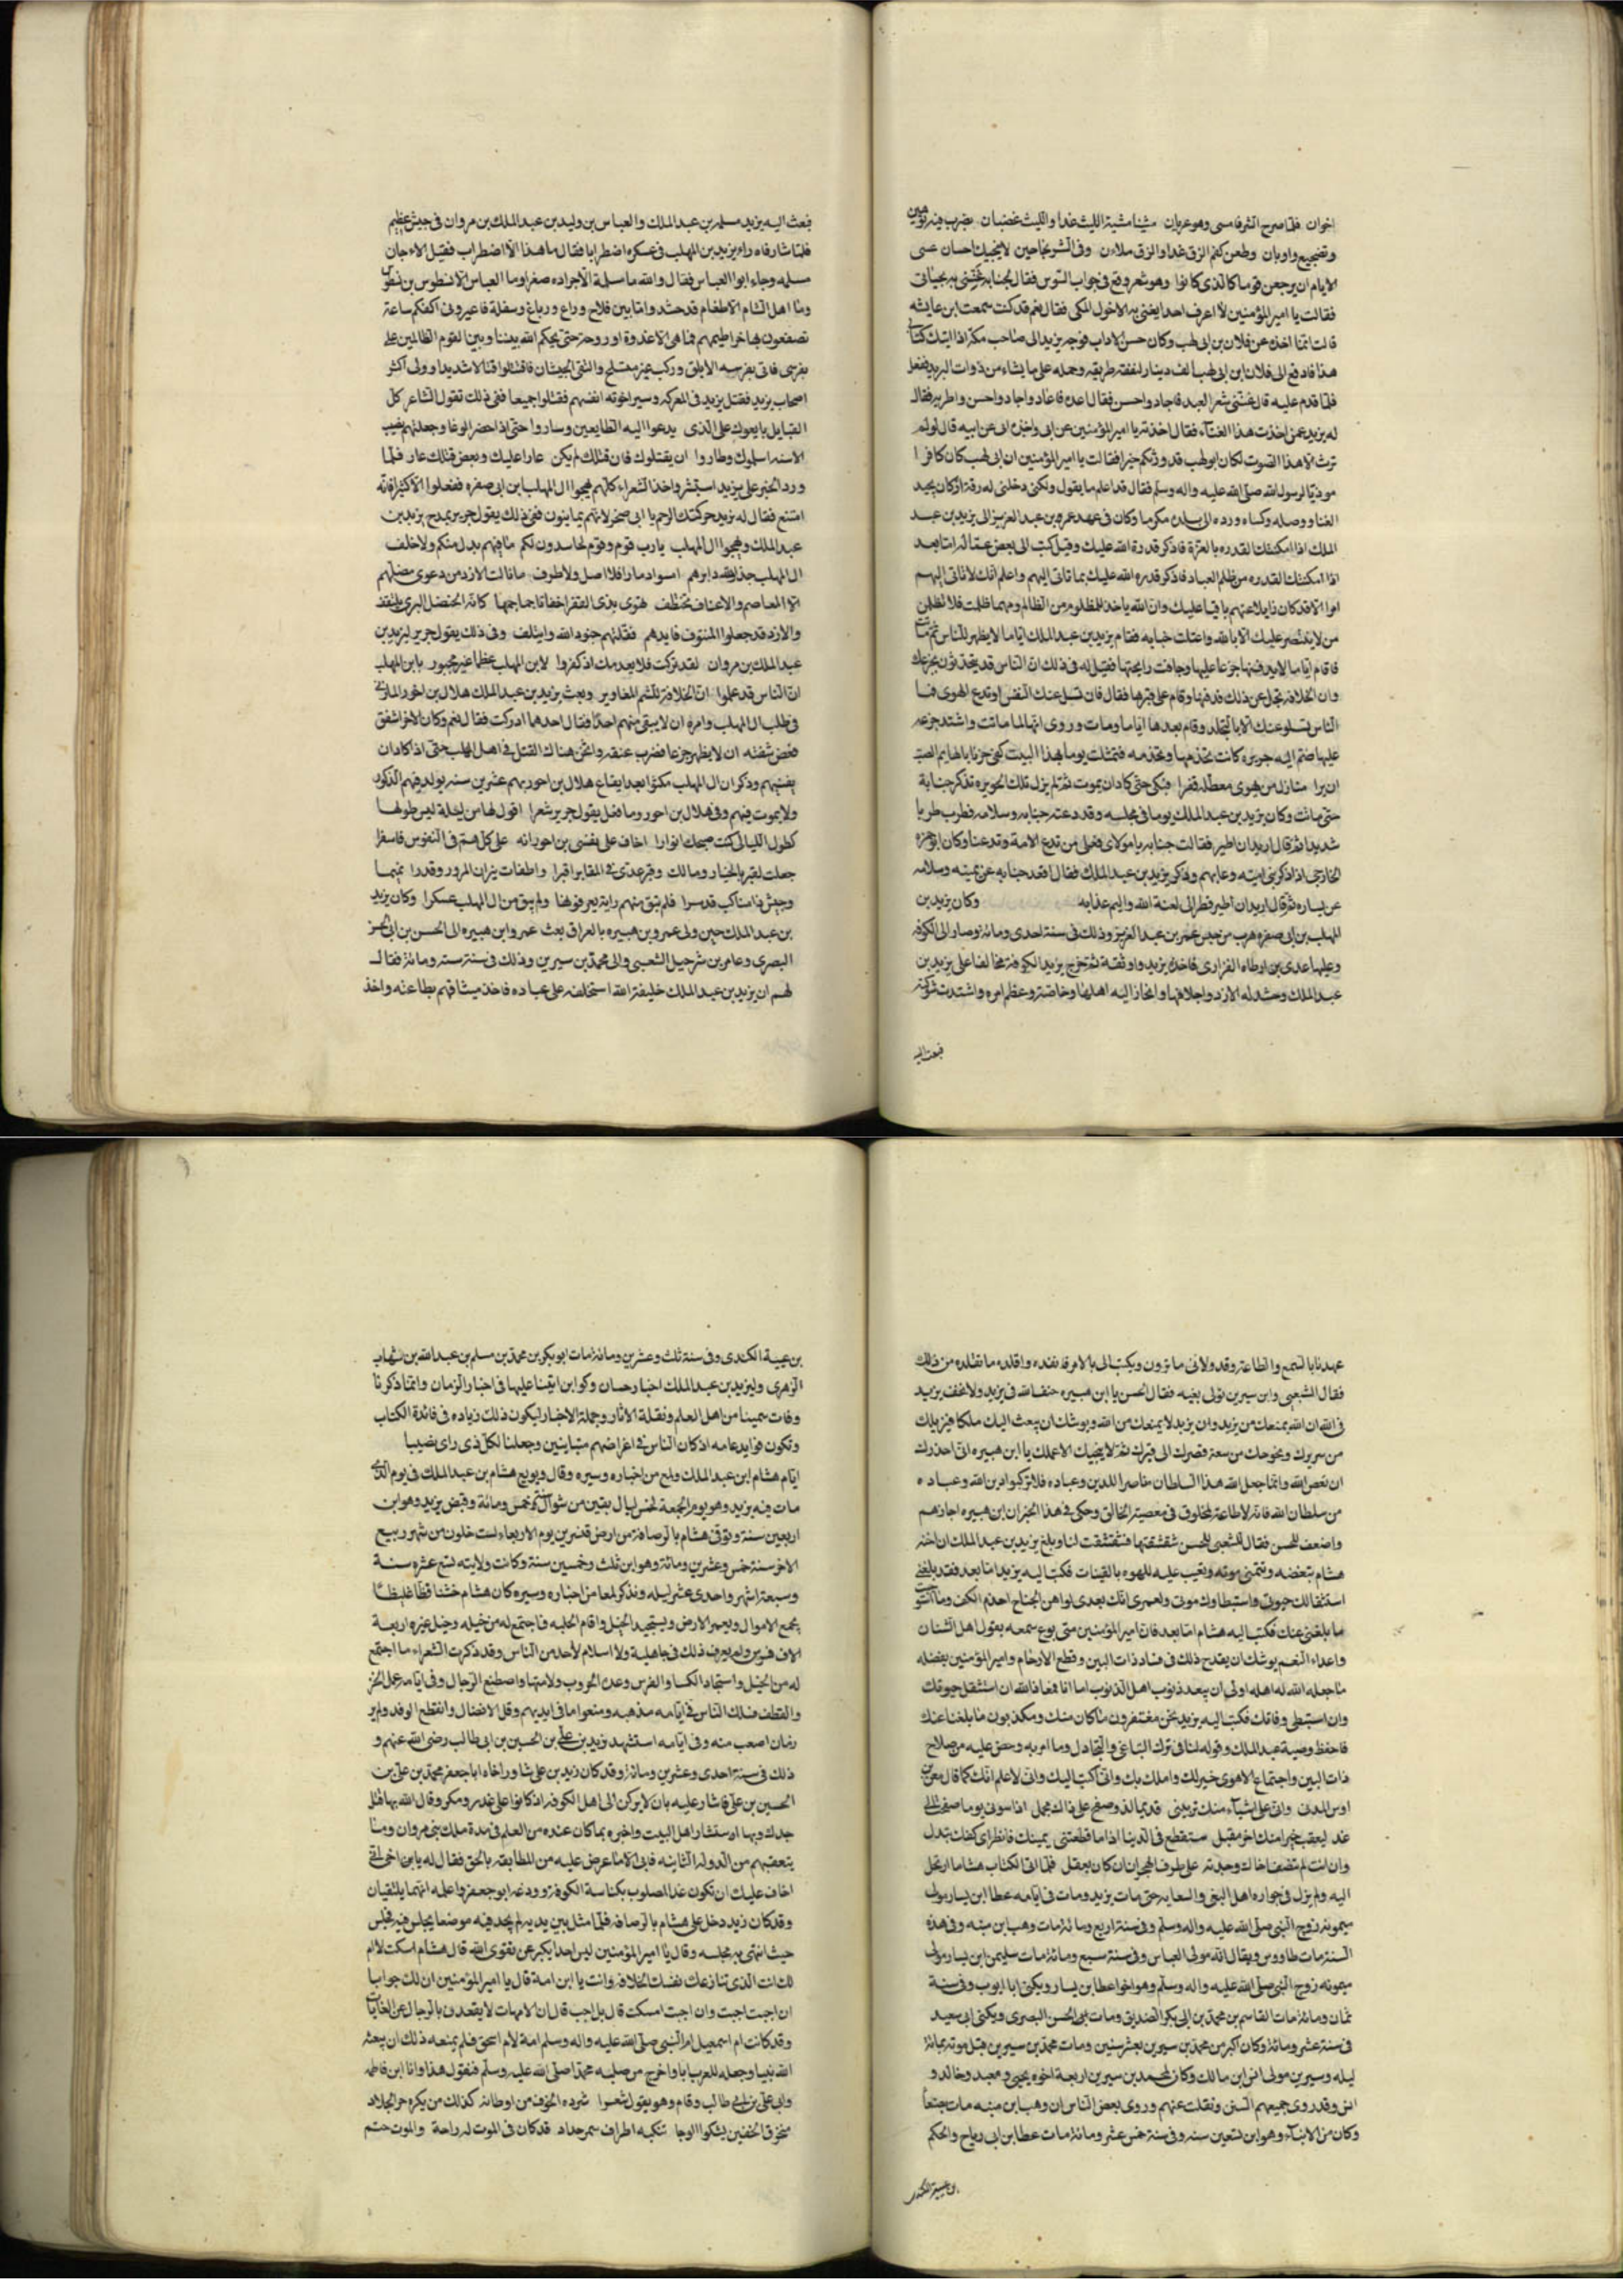 اخوان فلما صرح الشر فامسى وهو عريان مشينا مشية الليث غدا والليث غضبان بضرب فيه توهين
وتفجيع واوبان وطعن كفم الزق غدا والزق ملان وفى الشر نجا حين لا ينجيك احسان عسى
الايام ان يرجعن قوما كالذى كانوا وهو شعر وقع فى جواب السوس فقال لجنابه غنينى به بحياتى
فقالت يا امير المؤمنين لا اعرف احدا يغنى به الا خول المكى فقال نعم قد كنت سمعت ابن عايشه
قالت انما اخذه عن فلان بن ابى لهب وكان حسن الاداب فوجه يزيد الى صاحب مكة اذا اتاك كتابى
هذا فادفع الى فلان ابن ابى لهب الف دينار لنفقة طريقه وحمله على ما يشاء من دواب البريد ففعل
فلما قدم عليه قال غنينى شعر العبد فاجاد واحسن فقال اعده فاعاد واجاد واحسن واطربه فقال
له يزيد عمن اخذت هذا الغناء فقال اخذته يا امير المؤمنين عن ابى واخبره ابى عن ابيه قال لو لم
ترث الا هذا الصوت لكان ابو لهب قد ورثكم خيرا فقالت يا امير المؤمنين ان ابى لهب كان كافرا
موذيا لرسول الله صلى الله عليه واله وسلم فقال قد اعلم ما يقول ولكنى دخلنى له رقة اذ كان يجيد
الغنا ووصله وكساه ورده الى بلده مكرما وكان فى عهد عمر بن عبد العزيز الى يزيد بن عبد
الملك اذا امكنتك القدره بالعزة فاذكر قدرة الله عليك وقيل كتب الى بعض عماله اما بعد
اذا امكنتك القدره من ظلم العباد فاذكر قدره الله عليك بما تاتى اليهم واعلم انك لا تاتى اليهم
امرا الا قد كان زايلا عنهم باقيا عليك وان الله ياخذ للمظلوم من الظالم ومهما ظلمت فلا تظلمن
من لا ينتصر عليك الا بالله واعتلت حبابه فقام يزيد بن عبد الملك اياما لا يظهر للناس ثم ماتت
فاقام اياما لا يدفنها جزعا عليها وجافت رايحتها فقيل له فى ذلك ان الناس قد يتحدثون بجزعك
وان الخلافه تجل عن ذلك فدفنها وقام على قبرها فقال فان تسل عنك النفس او تدع الهوى فبا
الناس تسلو عنك لا بالتجلد وقام بعدها اياما ومات وروى انها لما ماتت واشتد جزعه
عليها ضم اليه جويره كانت تخدمها وتخدمه فتمثلت يوما بهذا البيت كفى حزنا بالهايم الصب
ان يرا منازل من يهوى معطلة قفرا فبكى حتى كاد ان يموت ثم لم يزل تلك الجويره تذكر حبابة
حتى مات وكان يزيد بن عبد الملك يوما فى مجلسه وقد دعته حبابه وسلامه فطرب طربا
شديدا ثم قال اريد ان اطير فقالت حبابه يا مولاى فعلى من تدع الامة وتدعنا وكان ابو حمزه
الخارجى اذا ذكر بنى اميه وعابهم وذكر يزيد بن عبد الملك فقال اقعد حبابه عن يمينه وسلامه
عن يساره ثم قال اريد ان اطير فطر الى لعنة الله واليم عذابه وكان يزيد بن
المهلب بن ابى صفره هرب من حبس عمر بن عبد العزيز وذلك فى سنة احدى ومائة وصار الى الكوفه
وعليها عدى بن ارطاه الفزارى فاخذه يزيد واوثقه ثم خرج يزيد الكوفة مخالفا على يزيد بن
عبد الملك وحشد له الازد واجلافها وانحاز اليه اهلها وخاصته وعظم امره واشتدت شوكته
فبعث اليه
فبعث اليه يزيد مسلمه بن عبد الملك والعباس بن وليد بن عبد الملك بن مروان فى جيش عظيم
فلما شارفاه راى يزيد بن المهلب فى عسكره اضطرابا فقال ما هذا الاضطراب فقيل الاء جان
مسلمه وجاء ابو العباس فقال والله ما مسلمة الا جراده صفرا وما العباس الا نسطوس بن نسطوس
وما اهل الشام الا طغام قد حشد واما بين فلاح وراع ودباغ وسفلة فاعيرونى اكفكم ساعة
تصفعون بها خراطيمهم فما هى الا غدوة او روحة حتى يحكم الله بيننا وبين القوم الظالمين على
بفرسى فاتى بفرسه الابلق وركب غير متسلح والتقى الجيشان فاقتتلوا قتالا شديدا وولى اكثر
اصحاب يزيد فقتل يزيد فى المعركه وصبر اخوته انفسهم فقتلوا جميعا ففى ذلك تقول الشاعر كل
القبايل بايعوك على الذى يدعوا اليه الطايعين وساروا حتى اذا حضر الوغا وجعلتهم نصب
الاسنه اسلموك وطاروا ان يقتلوك فان قتلك لم يكن عارا عليك وبعض قتلك عار فلما
ورد الخبر على يزيد استبشر واخذ الشعراء كلهم يهجوا ال المهلب ابن ابى صفره ففعلوا الا كثيرا فانه
امتنع فقال له يزيد حركتك الرحم يا ابى صخر لانهم يمانيون ففى ذلك يقول جرير يمدح يزيد بن
عبد الملك ويهجوا ال المهلب يا رب قوم وقوم لحاسدون لكم ما فيهم بدل منكم ولا خلف
ال المهلب جذ الله دابرهم اسوا رمادا فلا اصل ولا طرف ما نالت الازد من دعوى مضلهم
الا المعاصم والاعناق تختطف هوى بذى العقر اخفاتا جماجمها كانه الحنضل البرى ينتقف
والازد قد جعلوا المنتوف قايدهم فقتلهم جنود الله وايتلف وفى ذلك يقول جرير ليزيد بن
عبد الملك بن مروان لقد تركت فلا يعدمك اذ كفروا لابن المهلب عظما غير مجبور يا بن المهلب
ان الناس قد علموا ان الخلافة للشم المغاوير وبعث يزيد بن عبد الملك هلال بن احور المازنى
فى طلب ال المهلب وامره ان لا يبقى منهم احدا فقال احدهما ادركت فقال نعم وكان الاخر اشفق
فعض شفته ان لا يظهر جزعا فضرب عنقه واثخن هناك القتل فى اهل المهلب حتى اذا كاد ان
يفنيهم وذكر ان ال المهلب مكثوا بعد ايقاع هلال بن احور بهم عشرين سنه يولد فيهم الذكور
ولا يموت فيهم وفى هلال بن احور وما فعل يقول جرير شعرا اقول لها من ليلة ليس طولها
كطول الليالى كنت صبحك انوارا اخاف على نفسى بن احور انه على كل هم فى النفوس فاسفرا
جعلت لقبر بالخيار ومالك وقبر عدى فى المقابر اقبرا واطفات نيران المزور وقد را بنيهما
وجيش ذا مناكب قدسرا فلم تبق منهم راية يعرفونها ولم يبق من ال المهلب عسكرا وكان يزيد
بن عبد الملك حين ولى عمرو بن هبيره بالعراق بعث عمرو ابن هبيره الى الحسن بن ابى الحسن
البصرى وعامر بن شرحيل الشعبى والى محمد بن سيرين وذلك فى سنة سته ومائة فقال
لهم ان يزيد بن عبد الملك خليفة الله استخلفه على عباده فاخذ ميثاقهم بطاعته واخذ
عهدنا بالسمع والطاعة وقد ولانى ما ترون ويكتب الى بالامر فانفذه واقلده ما تقلده من ذلك
فقال الشعبى وابن سيرين قولى بغيه فقال الحسن يا ابن هبيره خف الله فى يزيد ولا تخف يزيد
فى الله ان الله يمنعك من يزيد وان يزيد لا يمنعك من الله ويوشك ان يبعث اليك ملكا فيزيلك
من سريرك ويخرجك من سعة قصرك الى قبرك ثم لا ينجيك الا عملك يا ابن هبيره انى احذرك
ان تعص الله وانما جعل الله هذا السلطان ناصرا للدين وعباده فلا تركبوا دين الله وعباده
من سلطان الله فانه لا طاعة لمخلوق فى معصية الخالق وحكى فى هذا الخبر ان ابن هبيره اجازهم
واضعف للحسن فقال الشعبى للحسن شقشقتها فشقشقت لنا وبلغ يزيد بن عبد الملك ان اخاه
هشام يتغضه ويتمنى موته ويعيب عليه للهوه بالقينات فكتب اليه يزيد اما بعد فقد بلغنى
استثقالك حيوتى واستبطاوك موتى ولعمرى انك بعدى لواهن الجناح اجذم الكف وما استوجبت
ما بلغنى عنك فكتب اليه هشام اما بعد فان امير المؤمنين متى يوع سمعه بقول اهل الشنان
واعداء النعم يوشك ان يقدح ذلك فى فساد ذات البين وقطع الارحام وامير المؤمنين بفضله
ما جعله الله له اهله اولى ان يعد ذنوب اهل الذنوب اما انا فمعاذ الله ان استثقل حيوتك
وان استبطى وفاتك فكتب اليه يزيد نحن مغتفرون ما كان منك ومكذبون ما بلغنا عنك
فاحفظ وصية عبد الملك وقوله لنا فى ترك التباغى والتجادل وما امر به وحض عليه من صلاح
ذات البين واجتماع الاهوى خير لك واملك بك وانى اكتب اليك وانى لاعلم انك كما قال معن بن
اوس المدنى وانى على اشياء منك تريبنى قديما لذو صفح على ذاك مجمل اذا سوتنى يوما صفحت الى
غد ليعقب خيرا منك اخر مقبل ستقطع فى الدنيا اذا ما قطعتنى يمينك فانظر اى كف تبدل
وان انت لم تنصف اخاك وجدته على طرف الهجران ان كان يعقل فلما اتى الكتاب هشاما ارتحل
اليه ولم يزل فى جواره اهل البغى والسعايه حتى مات يزيد ومات فى ايامه عطا ابن يسار مولى
ميمونه زوج النبى صلى الله عليه واله وسلم وفى سنة اربع ومائة مات وهب ابن منبه وفى هذه
السنة مات طاووس ويقال الله مولى العباس وفى سنة سبع ومائة مات سليمن ابن يسار مولى
ميمونه زوج النبى صلى الله عليه واله وسلم وهو اخو اعطا بن يسار ويكنى ابا ايوب وفى سنة
ثمان ومائة مات القاسم بن محمد بن ابى بكر الصديق ومات بنى الحسن البصرى ويكنى ابى سعيد
فى سنة عشر ومائة وكان اكبر من محمد بن سيرين بعشر سنين ومات محمد بن سيرين قبل موته بمائة
ليله وسيرين مولى انس ابن مالك وكان لمحمد بن سيرين اربعة اخوه يحيى ومعبد وخالد و
انس وقد روى جميعهم السنن ونقلت عنهم وروى بعض الناس ان وهب ابن منبه مات بصنعا
وكان من الابناء وهو ابن تسعين سنه وفى سنة خمس عشر ومائة مات عطا بن ابى رياح والحكم
بن عيينة الكندى
بن عيينة الكندى وفى سنة ثلث وعشرين ومائة مات ابو بكر بن محمد بن مسلم بن عبد الله بن شهاب
الزهرى وليزيد بن عبد الملك اخبار حسان وكوا ابن ايقنا عليها فى اخبار الزمان وانما ذكرنا
وفات سمينا من اهل العلم ونقلة الاثار وحملة الاخبار ليكون ذلك زياده فى فائدة الكتاب
وتكون فوايد عامه اذ كان الناس فى اغراضهم متباينين وجعلنا لكل ذى راى نصيبا
ايام هشام ابن عبد الملك ولمع من اخباره وسيره وقال وبويع هشام بن عبد الملك فى يوم الذى
مات فيه يزيد وهو يوم الجمعة لخمس ليال بقين من شوال سنة خمس ومائة وقبض يزيد وهو ابن
اربعين سنة وتوفى هشام بالرصافة من ارض قنسرين يوم الاربعاء لست خلون من شهر ربيع
الاخر سنة خمس وعشرين ومائة وهو ابن ثلث وخمسين سنة وكانت ولايته تسع عشره سنة
وسبعة اشهر واحدى عشر ليله ونذكر لمعا من اخباره وسيره كان هشام خشنا فظا غليظا
يجمع الاموال ويعمر الارض ويستجيد الخيل واقام الحلبه فاجتمع له من خيله وخيل غيره اربعة
الاف فرس ولم يعرف ذلك فى جاهلية ولا اسلام لاحد من الناس وقد ذكرت الشعراء ما اجتمع
له من الخيل واستجاد الكسا والفرش وعدد الحروب ولامتها واصطنع الرجال وفى ايامه عمل الخز
والقطف فسلك الناس فى ايامه مذهبه ومنعوا ما فى ايديهم وقل الافضال وانقطع الرفد ولم ير
زمان اصعب منه وفى ايامه استشهد زيد بن على بن الحسين بن ابى طالب رضى الله عنهم و
ذلك فى سنة احدى وعشرين ومائة وقد كان زيد بن على شاور اخاه ابا جعفر محمد بن على بن
الحسين بن على فاشار عليه بان لا يركن الى اهل الكوفه اذ كانوا على غدر ومكر وقال الله بها قتل
جدك وبها استشار اهل البيت واخبره بما كان عنده من العلم فى مدة ملك بنى مروان وما
يتعقبهم من الدوله الثانيه فابى الا ما عرض عليه من المطابقه بالحق فقال له يا بن اخى انى
اخاف عليك ان تكون غدا المصلوب بكناسة الكوفة وودعه ابو جعفر واعلمه انهما يلتقيان
وقد كان زيد دخل على هشام بالرصافه فلما مثل بين يديه لم يجد فيه موضعا يجلس فيه فجلس
حيث انتهى به مجلسه وقال يا امير المؤمنين ليس احدا يكبر عن تقوى الله قال هشام اسكت لا ام
لك انت الذى تنازعك نفسك الخلافه وانت يا ابن امة قال يا امير المؤمنين ان لك جوابا
ان اجبت اجبت وان اجبت امسكت قال بل اجب قال ان الامهات لا يقعدن بالرجال عن الغايات
وقد كانت ام اسمعيل ام النبى صلى الله عليه واله وسلم امة لام اسحق فلم يمنعه ذلك ان بعثه
الله نبيا وجعله للعرب ابا واخرج من صلبه محمدا صلى الله عليه وسلم فتقول هذا وانا ابن فاطمه
وابى على بن ابى طالب وقام وهو يقول شعرا شرده الخوف من اوطانه كذلك من يكره حر الجلاد
منخرق الخفين يشكوا الوجا تنكبه اطراف سمر حداد قد كان فى الموت له راحة والموت حتم